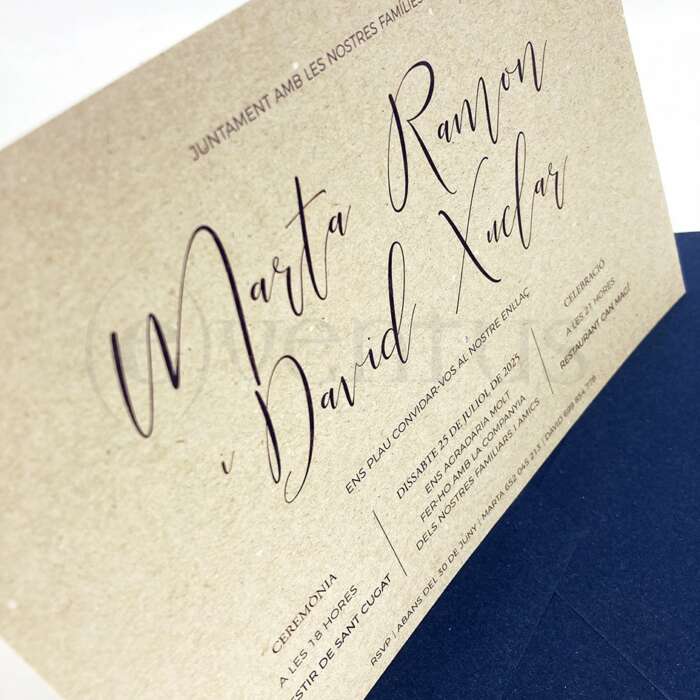 JUNTAMENT AMB LES NOSTRES FAMÍLIES
Marta Ramon
i David Xuclar
ENS PLAU CONVIDAR-VOS AL NOSTRE ENLLAÇ
CEREMÒNIA
A LES 18 HORES
ESTIR DE SANT CUGAT
DISSABTE 25 DE JULIOL DE 2025
ENS AGRADARIA MOLT
FER-HO AMB LA COMPANYIA
DELS NOSTRES FAMILIARS I AMICS
CELEBRACIÓ
A LES 21 HORES
RESTAURANT CAN MAGÍ
RSVP | ABANS DEL 30 DE JUNY | MARTA 652 045 213 | DAVID 699 854 778